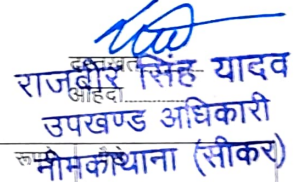 दस्तखत
राजबीर सिंह यादव
ओहदा
उपखण्ड अधिकारी
नीमकाथाना (सीकर)